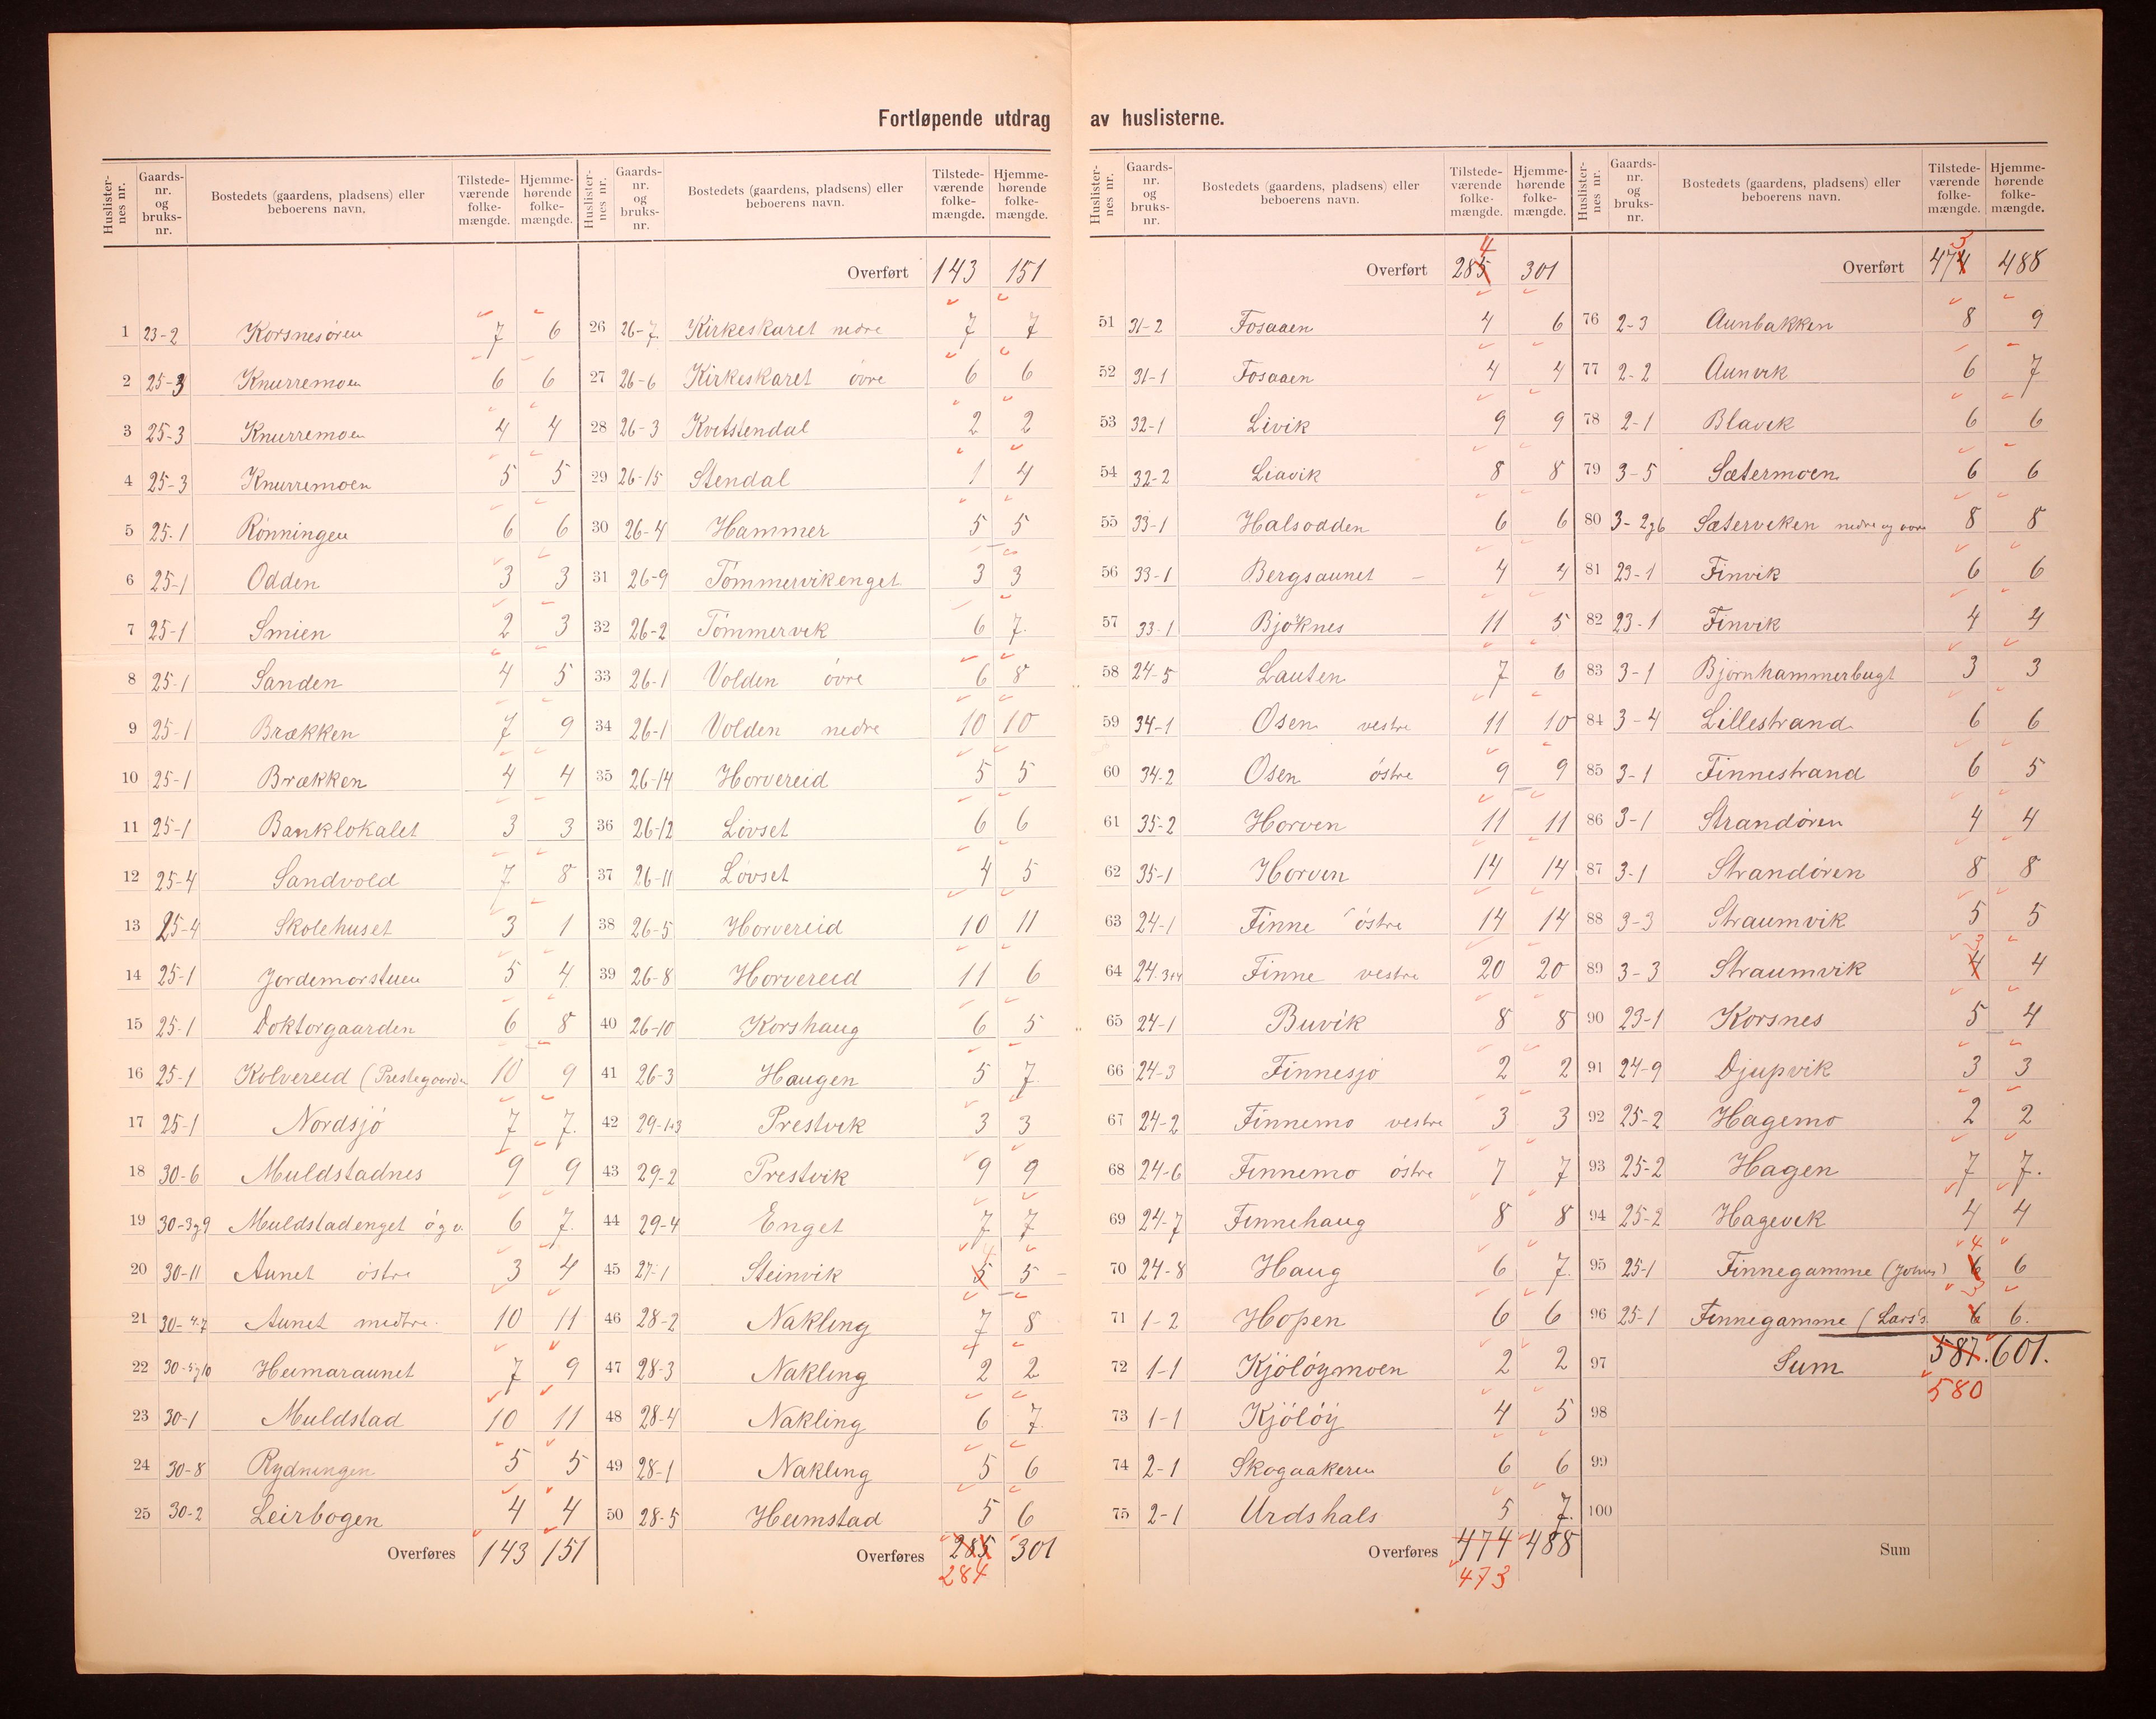 Fortløpende utdrag av huslisterne.
Huslister-nes nr. Gaards-nr. og bruks-nr. Bostedets (gaardens, pladsens) eller beboerens navn. Tilstede-værende folke-mængde. Hjemme-hørende folke-mængde.
1 23-2 Korsnesøren 7 6
2 25-3 Knurremoen 6 6
3 25-3 Knurremoen 4 4
4 25-3 Knurremoen 5 5
5 25-1 Rönningen 6 6
6 25-1 Odden 3 3
7 25-1 Smien 2 3
8 25-1 Sanden 4 5
9 25-1 Brækken 7 9
10 25-1 Brækken 4 4
11 25-1 Banklokalet 3 3
12 25-4 Sandvold 7 8
13 25-4 Skolehuset 3 1
14 25-1 Jordemorstuen 5 4
15 25-1 Doktorgaarden 6 8
16 25-1 Kolvereid (Prestegaarden 10 9
17 25-1 Nordsjö 7 7.
18 30-6 Muldstadnes 9 9
19 30-3g9 Muldstadenget ö g v. 6 7.
20 30-11 Aunet östre 3 4
21 30-4.7 Aunet medtre. 10 11
22 30-5g10 Heimaraunet 7 9
23 30-1 Muldstad 10 11
24 30-8 Rydningen 5 5
25 30-2 Leirbogen 4 4
Overføres 143 151
Huslister-nes nr. Gaards-nr. og bruks-nr. Bostedets (gaardens, pladsens) eller beboerens navn. Tilstede-værende folke-mængde. Hjemme-hørende folke-mængde.
Overført 143 151
26 26-7. Kirkeskaret nedre 7 7
27 26-6 Kirkeskaret övre 6 6
28 26-3 Kvitstendal 2 2
29 26-15 Stendal 1 4
30 26-4 Hammer 5 5
31 26-9 Tömmervikenget 3 3
32 26-2 Tömmervik 6 7.
33 26-1 Volden övre 6 8
34 26-1 Volden nedre 10 10
35 26-14 Horvereid 5 5
36 26-12 Lövset 6 6
37 26-11 Lövset 4 5
38 26-5 Horvereid 10 11
39 26-8 Horvereid 11 6
40 26-10 Korshaug 6 5
41 26-3 Haugen 5 7.
42 29-1+3 Prestvik 3 3
43 29-2 Prestvik 9 9
44 29-4 Enget 7 7
45 27-1 Steinvik 5 4 5
46 28-2 Nakling 7 8
47 28-3 Nakling 2 2
48 28-4 Nakling 6 7.
49 28-1 Nakling 5 6
50 28-5 Heimstad 5 6
Overføres 285 301
284
Huslister-nes nr. Gaards-nr. og bruks-nr. Bostedets (gaardens, pladsens) eller beboerens navn. Tilstede-værende folke-mængde. Hjemme-hørende folke-mængde.
Overført 285 4 301
51 31-2 Fosaaen 4 6
52 31-1 Fosaaen 4 4
53 32-1 Livik 9 9
54 32-2 Liavik 8 8
55 33-1 Halsodden 6 6
56 33-1 Bergsaunet 4 4
57 33-1 Bjöknes 11 5
58 24-5 Lauten 7 6
59 34-1 Osen vestre 11 10
60 34-2 Osen östre 9 9
61 35-2 Horven 11 11
62 35-1 Horven 14 14
63 24-1 Finne östre 14 14
64 24-3+4 Finne vestre 20 20
65 24-1 Buvik 8 8
66 24-3 Finnesjö 2 2
67 24-2 Finnemo vestre 3 3
68 24-6 Finnemo östre 7 7
69 24-7 Finnehaug 8 8
70 24-8 Haug 6 7.
71 1-2 Hopen 6 6
72 1-1 Kjölöymoen 2 2
73 1-1 Kjölöy 4 5
74 2-1 Skogaakeren 6 6
75 2-1 Urdshals 5 7.
Overføres 474 488
473
Huslister-nes nr. Gaards-nr. og bruks-nr. Bostedets (gaardens, pladsens) eller beboerens navn. Tilstede-værende folke-mængde. Hjemme-hørende folke-mængde.
Overført 474 3 488
76 2-3 Aunbakken 8 9
77 2-2 Aunvik 6 7
78 2-1 Blavik 6 6
79 3-5 Sætermoen 6 6
80 3-2g6 Sæterviken nedre og övre 8 8
81 23-1 Finvik 6 6
82 23-1 Finvik 4 4
83 3-1 Bjørnhammerbugt 3 3
84 3-4 Lillestrand 6 6
85 3-1 Finnestrand 6 5
86 3-1 Strandören 4 4
87 3-1 Strandören 8 8
88 3-3 Straumvik 5 5
89 3-3 Straumvik 4 3 4
90 23-1 Korsnes 5 4
91 24-9 Djupvik 3 3
92 25-2 Hagemo 2 2
93 25-2 Hagen 7 7.
94 25-2 Hagevik 4 4
95 25-1 Finnegamme (Johns) 6 4 6
96 25-1 Finnegamme (Lars's 6 3 6.
97 Sum 587. 601.
580
98
99
100
Sum